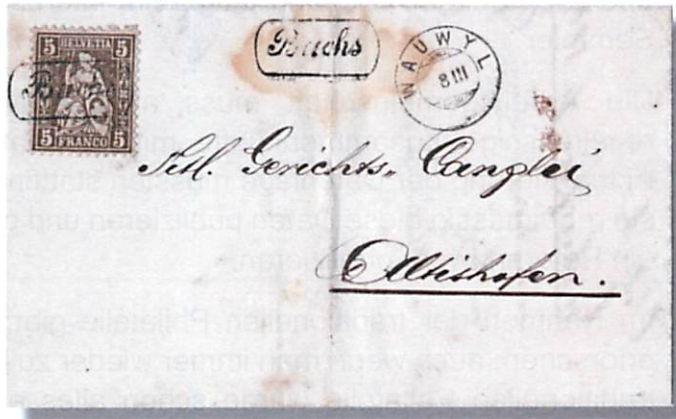 5 HELVETIA 5
5 FRANCO 5
Buchs
Buchs
NAUWYL
8 III
Titl. Gerichts-Canzlei
Altishofen.